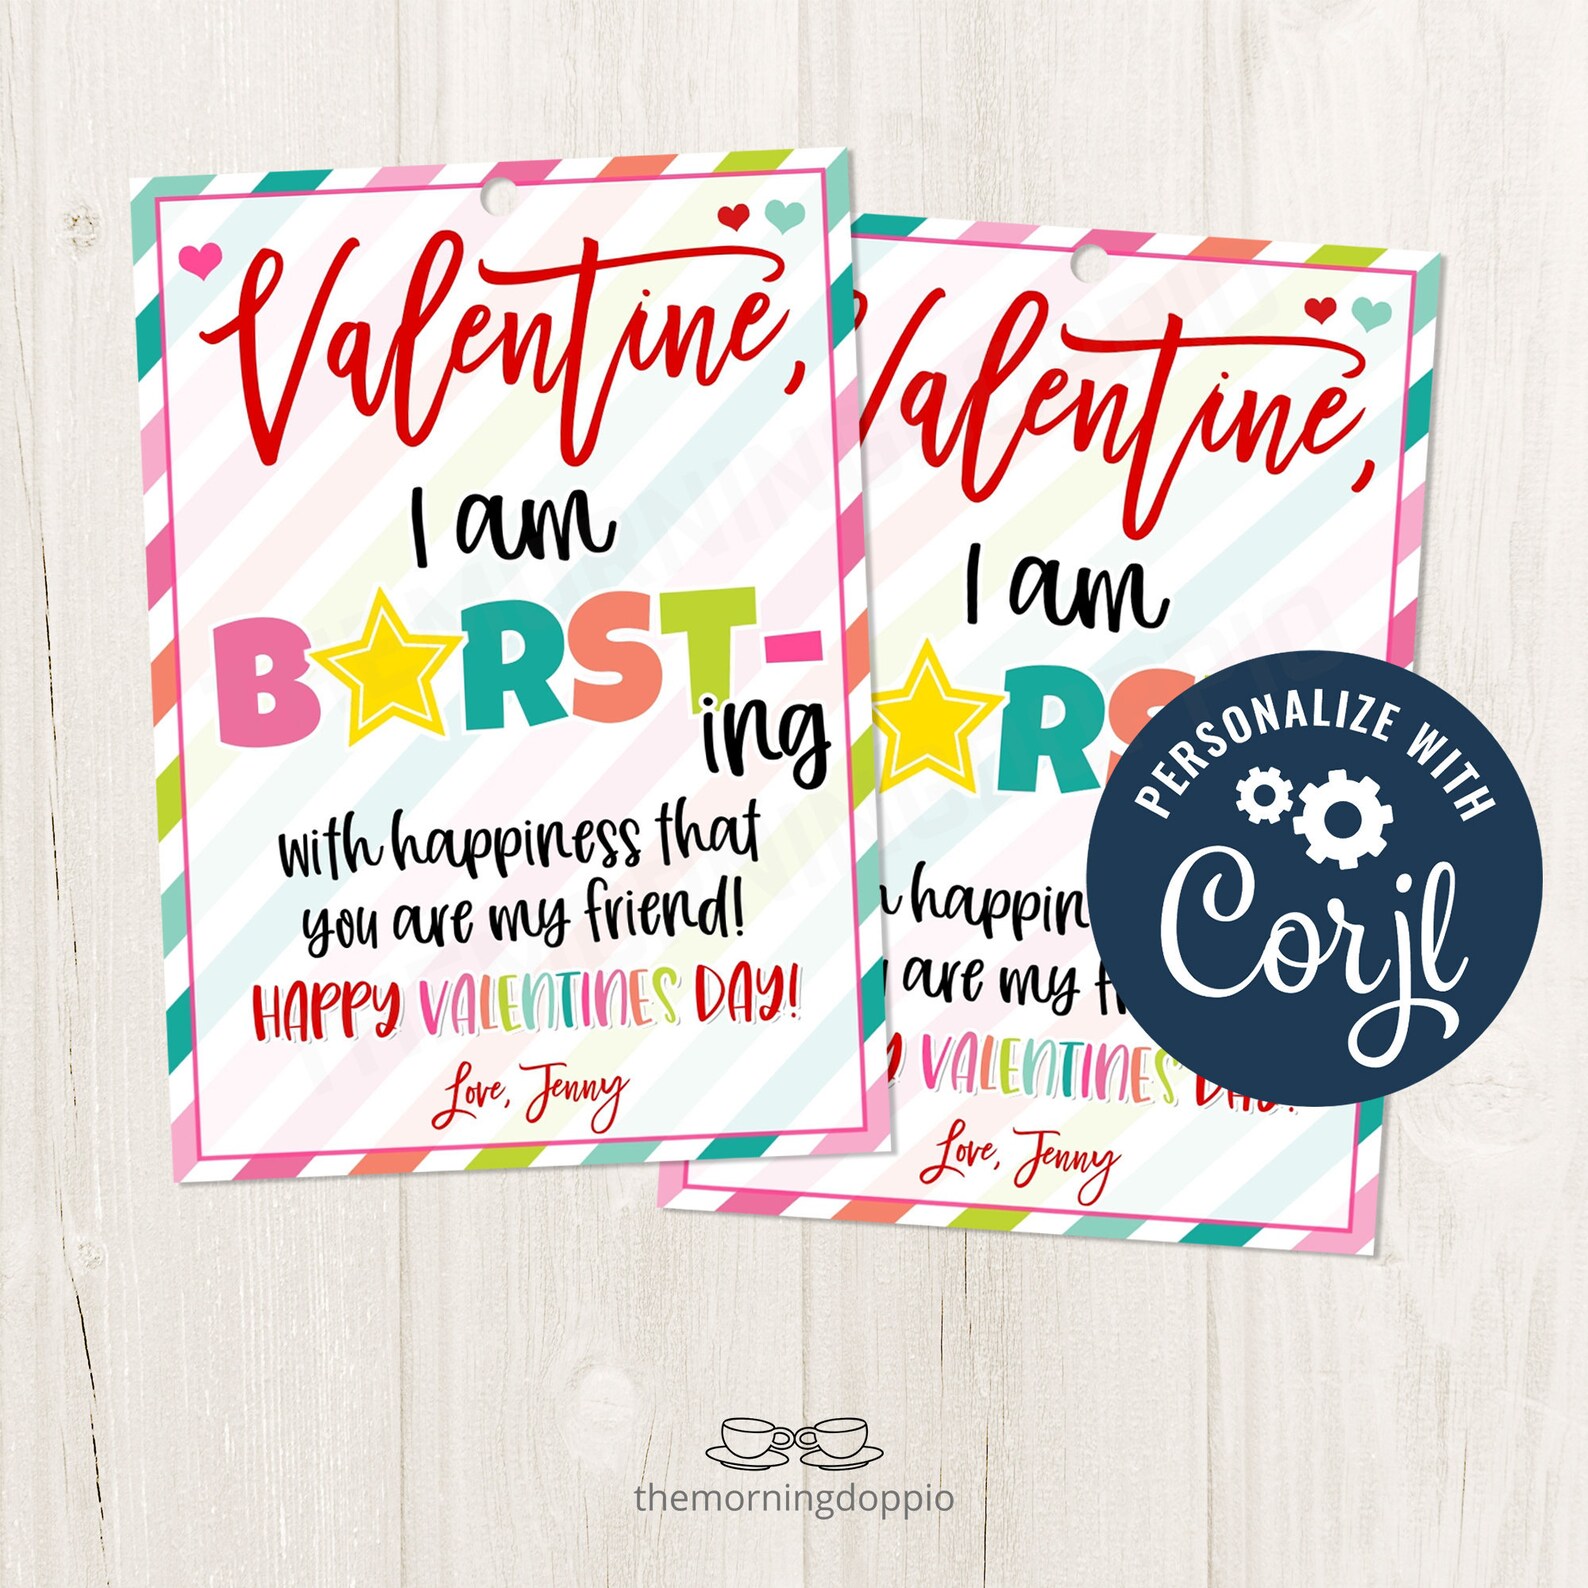 Valentine,
I am
B★RST-
ing
with happiness that
you are my friend!
HAPPY VALENTINES DAY!
Love, Jenny
Valentine,
I am
★RS
happin
are my fr
VALENTINES DAY!
Love, Jenny
PERSONALIZE WITH
Corjl
themorningdoppio